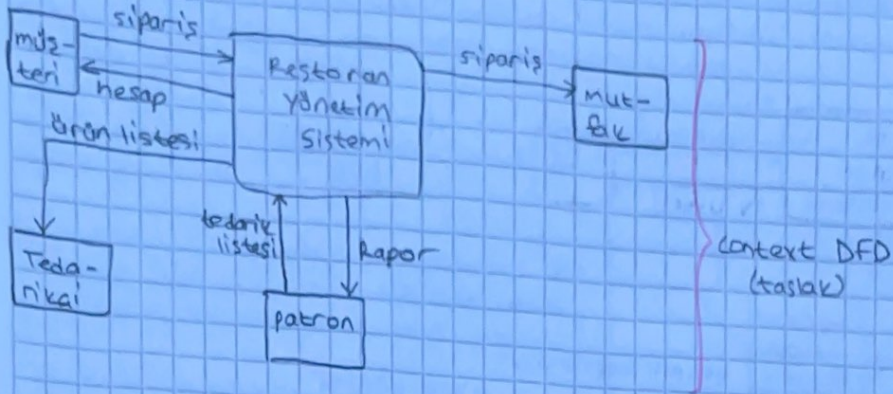 sipariş
müş-
teri
hesap
ürün listesi
Restoran
Yönetim
Sistemi
sipariş
mut-
fak
Teda-
rikçi
tedarik
listesi
Rapor
patron
context DFD
(taslak)